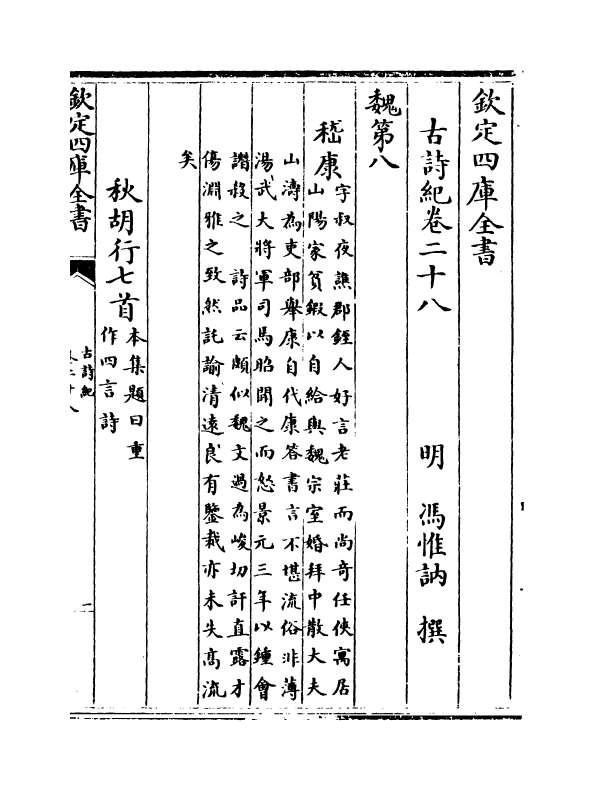 欽定四庫全書
古詩紀卷二十八
明 馮惟訥 撰
魏第八
嵇康
字叔夜譙郡銍人好言老莊而尚奇任俠寓居
山陽家貧鍛以自給與魏宗室婚拜中散大夫
山濤為吏部舉康自代康答書言不堪流俗非薄
湯武大將軍司馬昭聞之而怒景元三年以鍾會
譖殺之 詩品云頗似魏文過為峻切訐直露才
傷淵雅之致然託諭清遠良有鑒裁亦未失高流
矣
秋胡行七首
本集題曰重
作四言詩
欽定四庫全書
古詩紀
卷二十八
一